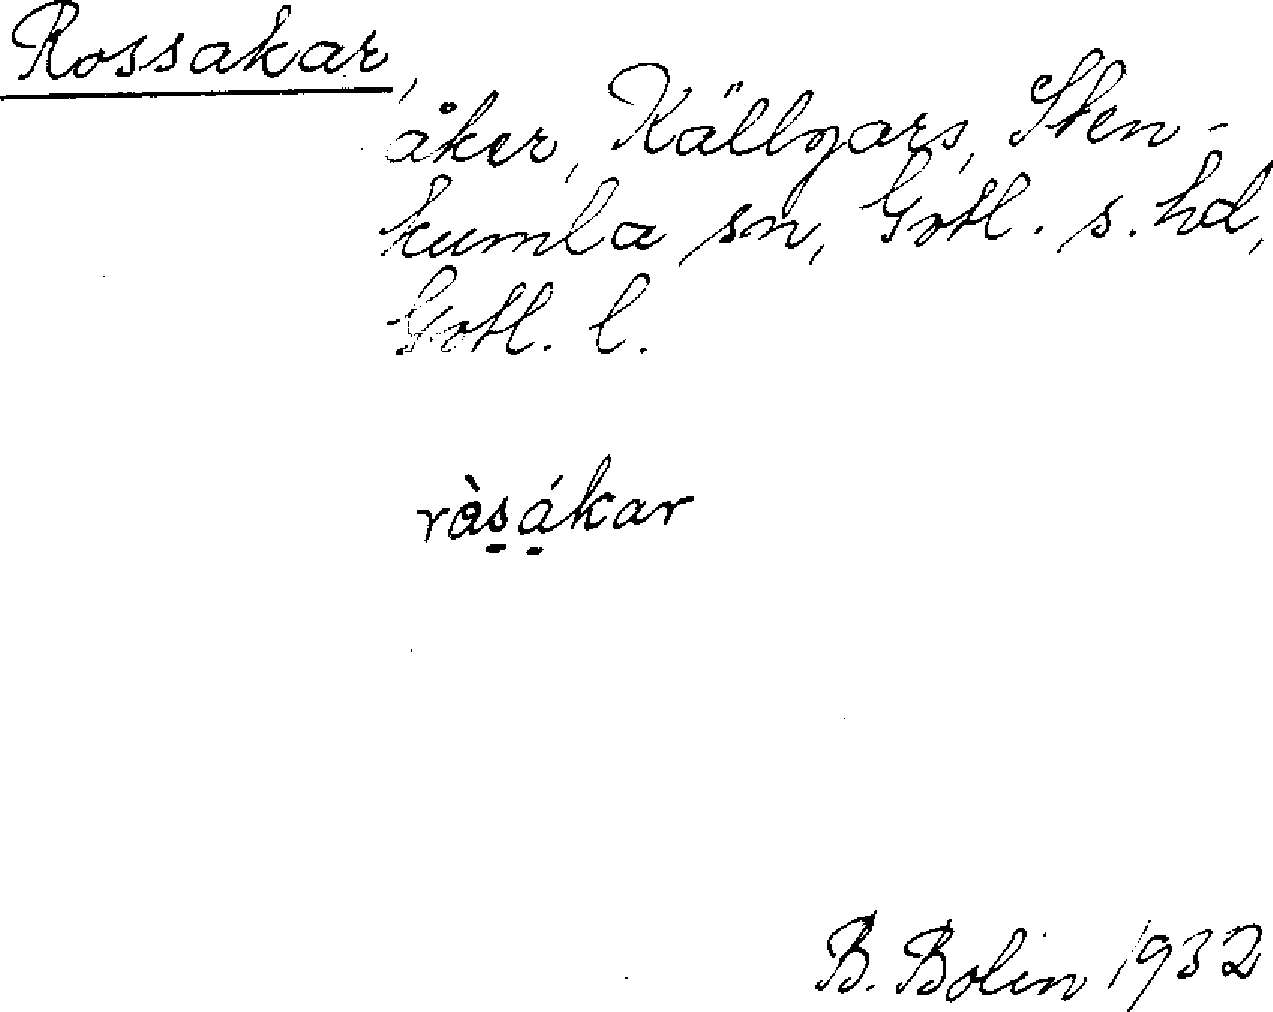 Rossakar,
åker, Källgars, Sten-
kumla sn, Gotl. s. hd,
Gotl. l.
ràs̱á̱kar
B. Bolin 1932